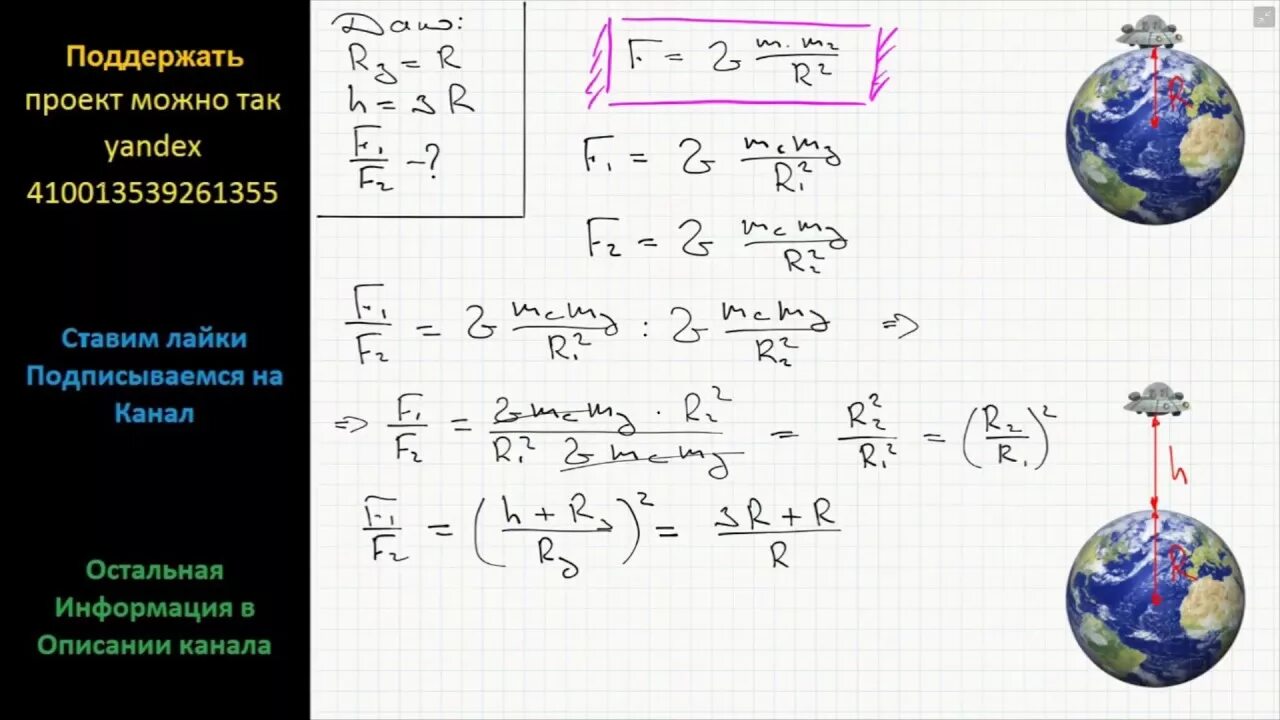 Поддержать
проект можно так
yandex
410013539261355
Ставим лайки
Подписываемся на
Канал
Остальная
Информация в
Описании канала
Дано:
Rз = R
h = 3R
F₁/F₂ - ?
F = G m₁ m₂/R²
F₁ = G mc mз/R₁²
F₂ = G mc mз/R₂²
F₁/F₂ = G mc mз/R₁² : G mc mз/R₂² =>
=> F₁/F₂ = G mc mз · R₂²/R₁² G mc mз = R₂²/R₁² = (R₂/R₁)²
F₁/F₂ = (h + Rз/Rз)² = 3R + R/R
R
h
R